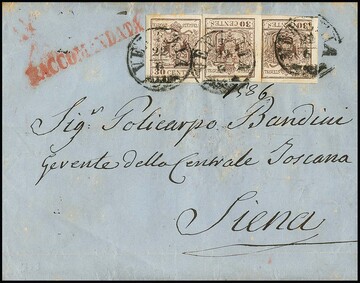 RACCOMANDATA
30 CENTES
30 CENTES
30 CENTES
1586
Sig.r Policarpo Bandini
Gerente della Centrale Toscana
Siena